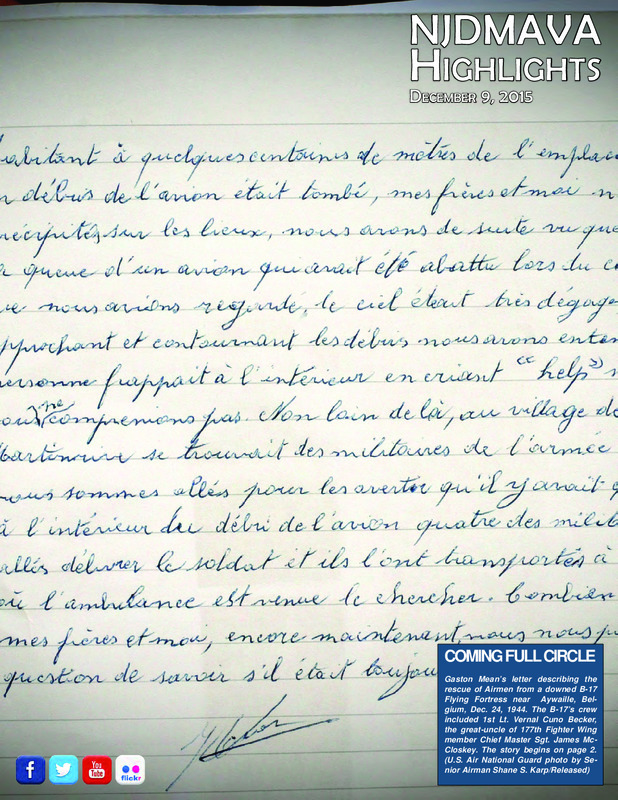 NJDMAVA
HIGHLIGHTS
DECEMBER 9, 2015
habitant à quelques centaines de mètres de l'emplac
débris de l'avion était tombé, mes frères et moi n
récipités sur les lieux, nous avons de suite vu que
queue d'un avion qui avait été abattu lors du c
nous avions regardé, le ciel était très dégag
pprochant et contournant les débris nous avons enten
personne frappait à l'intérieur en criant "help"
ne
comprenions pas. Non loin de là, au village de
se trouvait des militaires de l'armée
nous sommes allés pour les avertir qu'il y avait
à l'intérieur du débri de l'avion quatre des milit
allés délivrer le soldat et ils l'ont transportés à
où l'ambulance est venue le chercher. Combien
mes frères et moi, encore maintenant, nous nous p
question de savoir s'il était toujou
COMING FULL CIRCLE
Gaston Mean's letter describing the
rescue of Airmen from a downed B-17
Flying Fortress near Aywaille, Bel-
gium, Dec. 24, 1944. The B-17's crew
included 1st Lt. Vernal Cuno Becker,
the great-uncle of 177th Fighter Wing
member Chief Master Sgt. James Mc-
Closkey. The story begins on page 2.
(U.S. Air National Guard photo by Se-
nior Airman Shane S. Karp/Released)
f
You
Tube
flickr